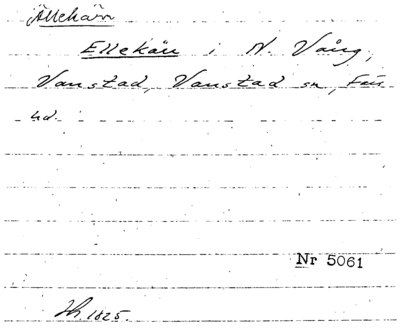 Ällekärr
Ellekärr i N. Vång,
Vanstad, Vanstad sn, Färs
hd.
Nr 5061
1825.